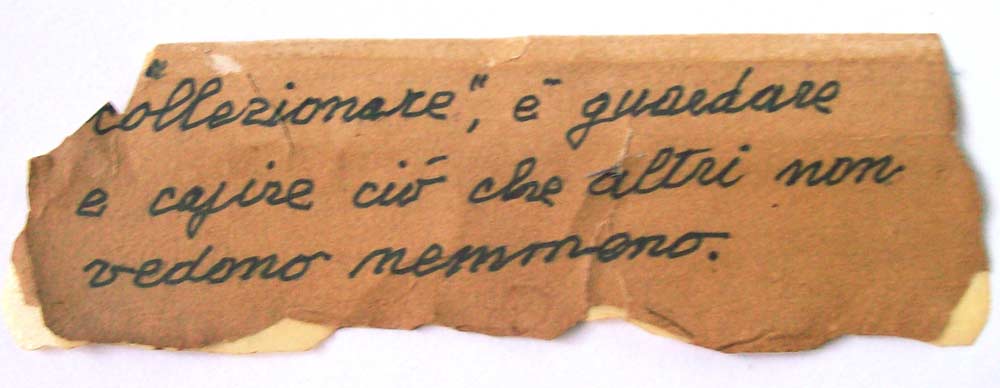 "collezionare", è guardare
e capire ciò che altri non
vedono nemmeno.